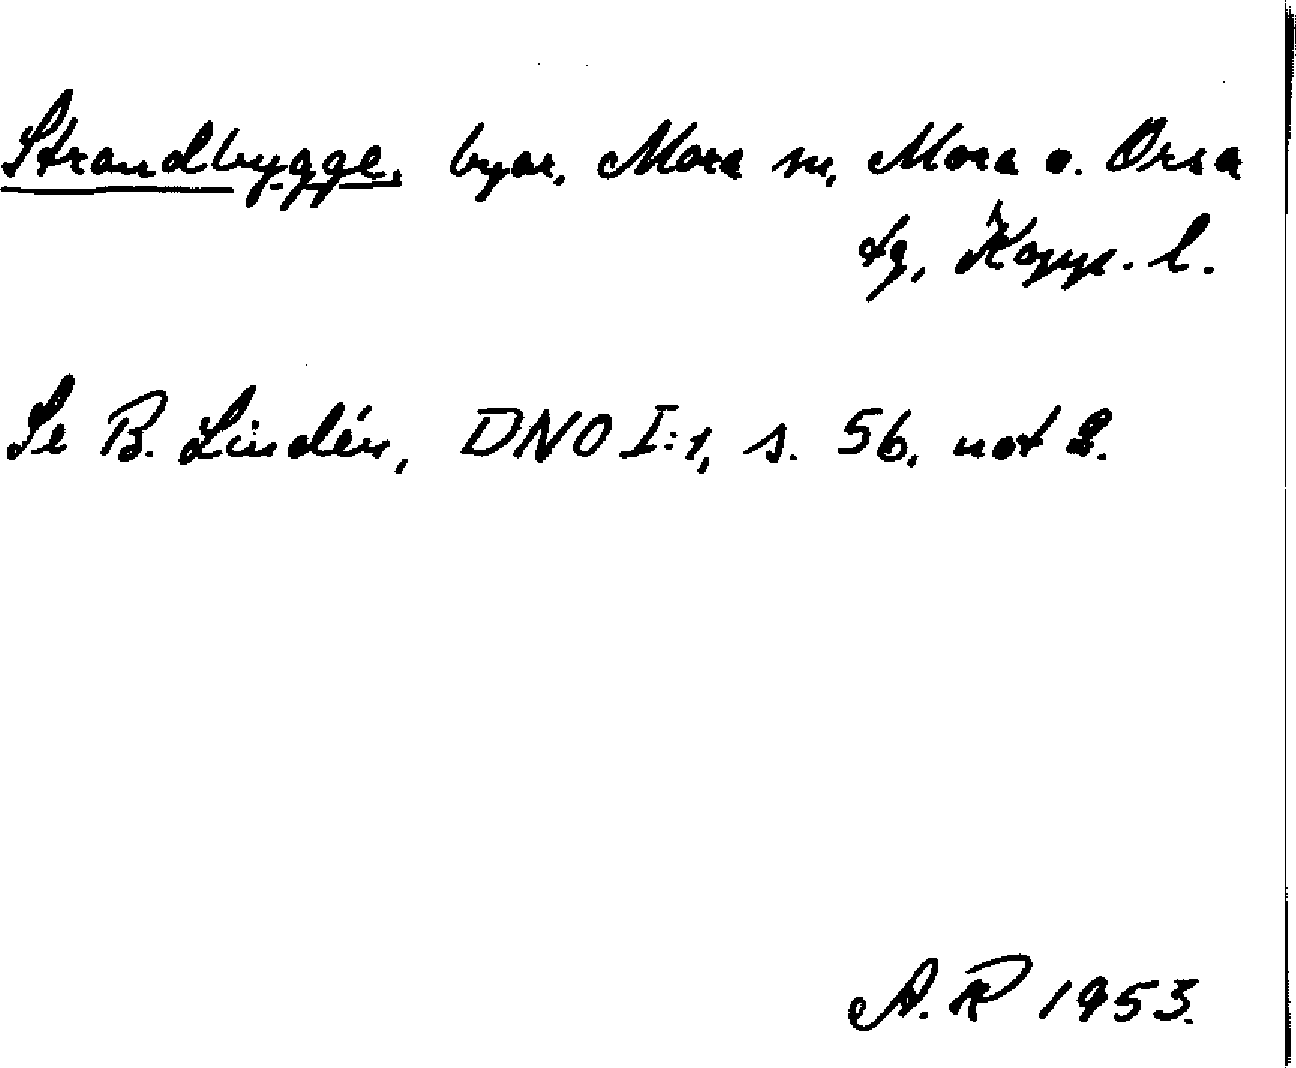 Strandbygge, byar, Mora sn, Mora o. Orsa
tg, Kopp. l.
Se B. Lindén, DNO I:1, s. 56, not 2.
A. R 1953.